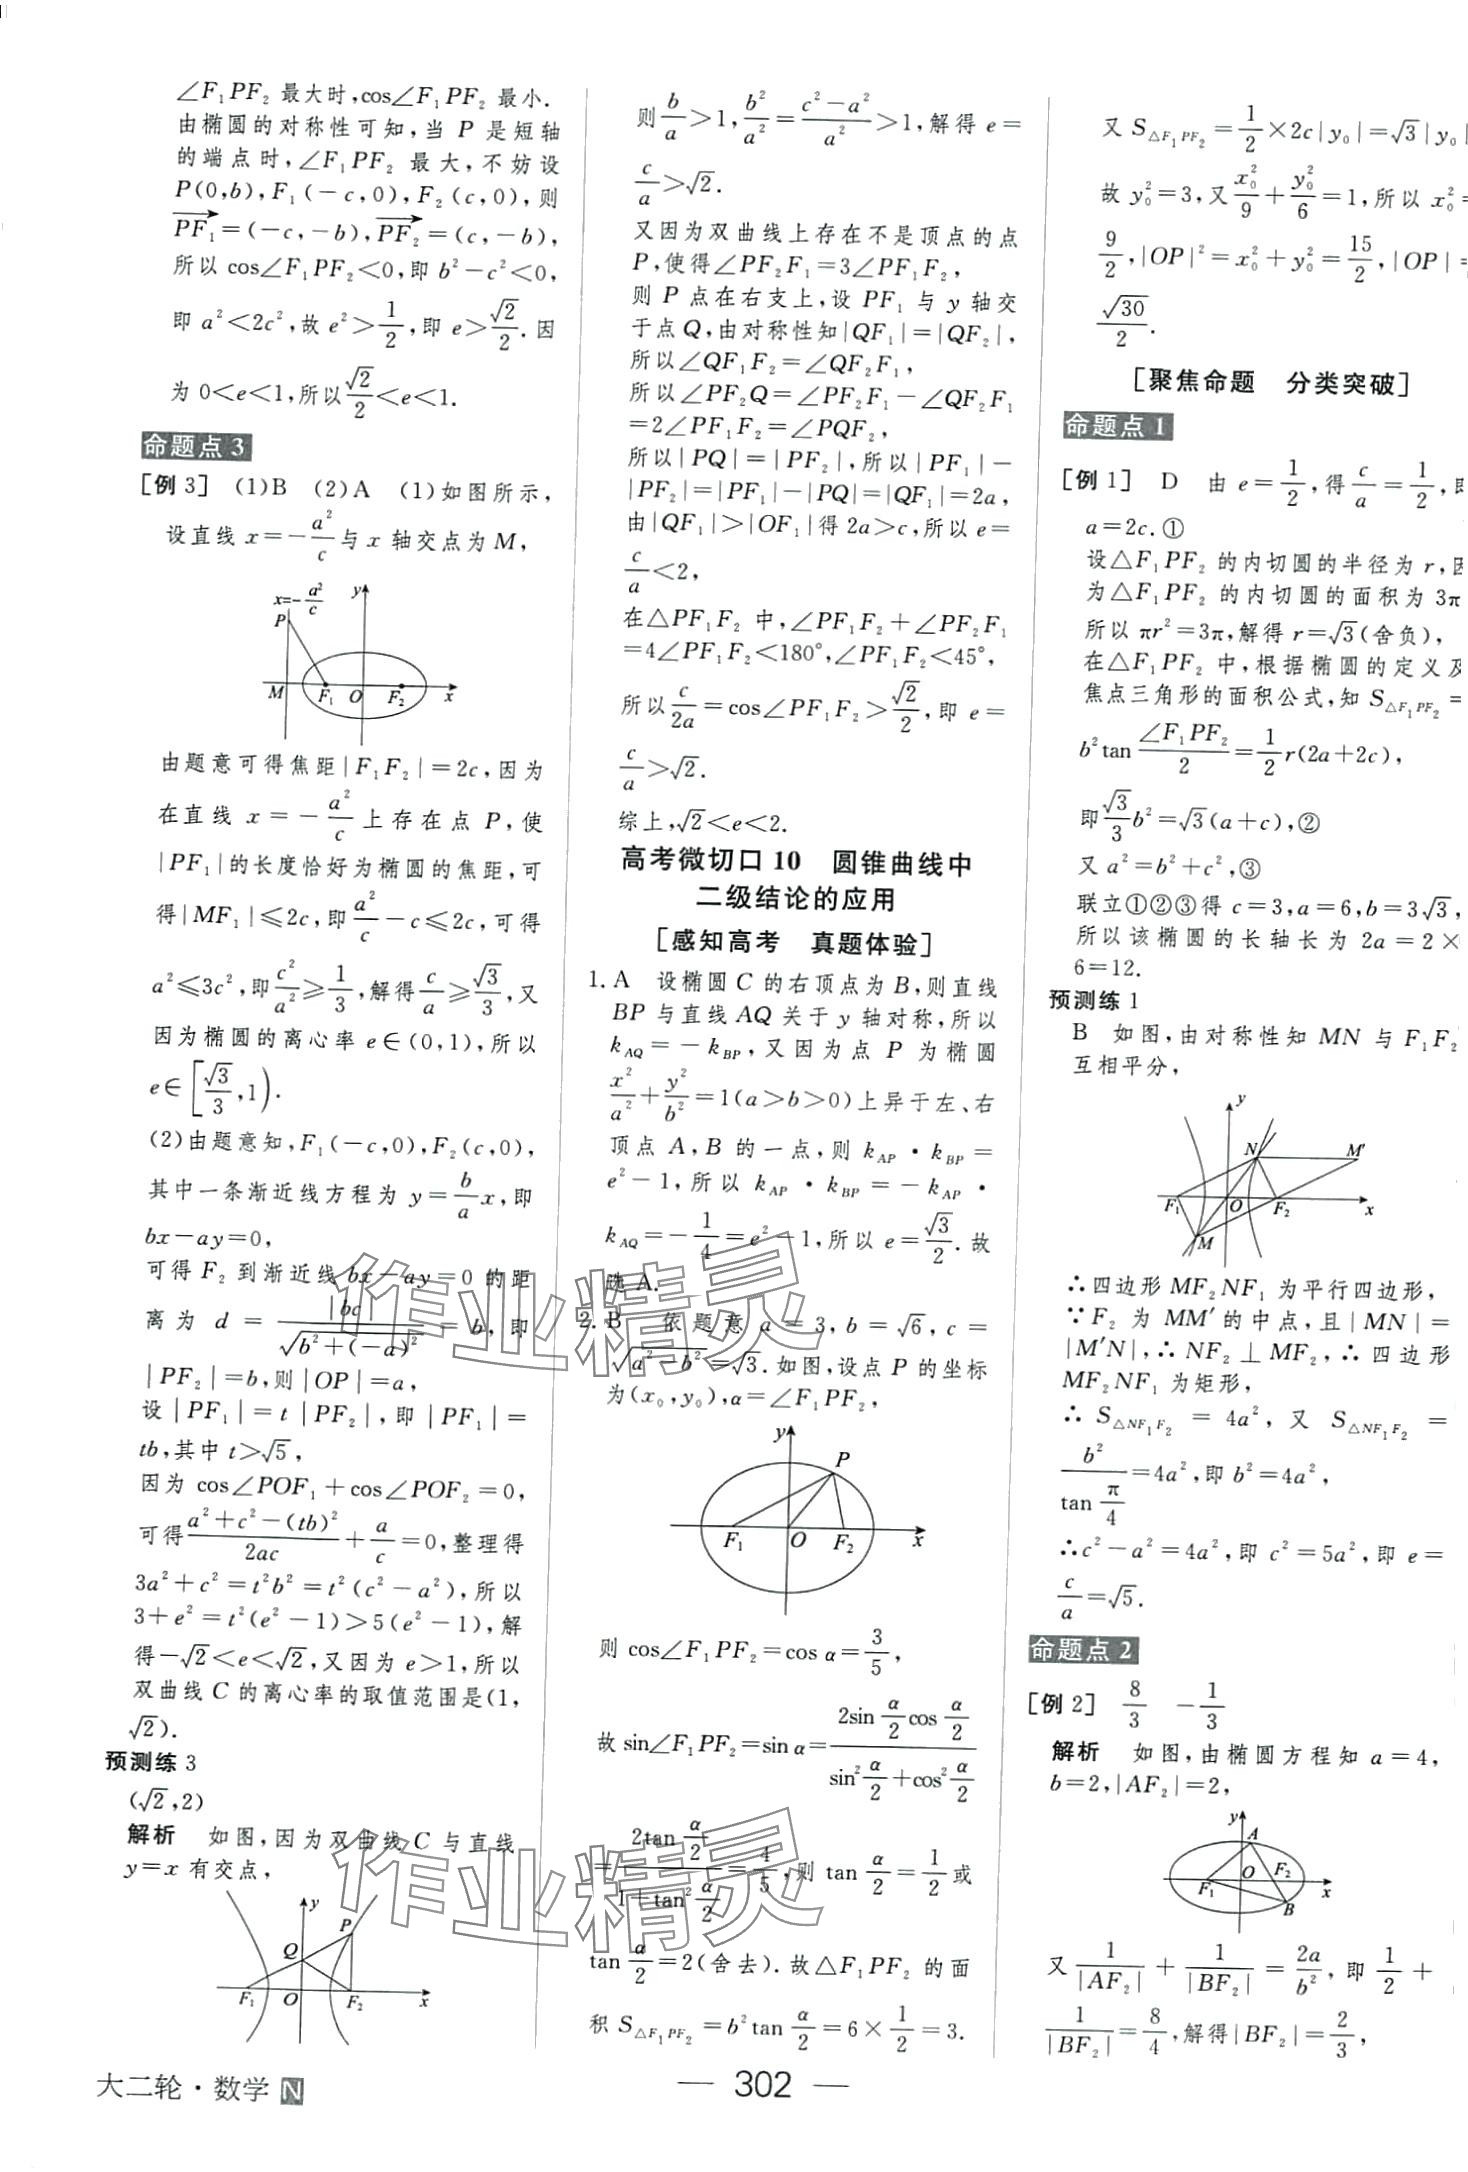 ∠F₁PF₂ 最大时,cos∠F₁PF₂ 最小.
由椭圆的对称性可知,当 P 是短轴
的端点时,∠F₁PF₂ 最大,不妨设
P(0,b),F₁(-c,0),F₂(c,0),则
PF₁=(-c,-b),PF₂=(c,-b),
所以 cos∠F₁PF₂<0,即 b²-c²<0,
即 a²<2c²,故 e²>1/2,即 e>√2/2.因
为 0<e<1,所以√2/2<e<1.
命题点 3
[例 3] (1)B (2)A (1)如图所示,
设直线 x=-a²/c与 x 轴交点为 M,
x=-a²/c y
P
M F₁ O F₂ x
由题意可得焦距|F₁F₂|=2c,因为
在直线 x=-a²/c上存在点 P,使
|PF₁|的长度恰好为椭圆的焦距,可
得|MF₁|≤2c,即a²/c-c≤2c,可得
a²≤3c²,即c²/a²≥1/3,解得c/a≥√3/3,又
因为椭圆的离心率 e∈(0,1),所以
e∈[√3/3,1).
(2)由题意知,F₁(-c,0),F₂(c,0),
其中一条渐近线方程为 y=b/a x,即
bx-ay=0,
可得 F₂ 到渐近线 bx-ay=0 的距
离为 d=|bc|/√(b²+(-a)²)=b,即
|PF₂|=b,则|OP|=a,
设|PF₁|=t|PF₂|,即|PF₁|=
tb,其中 t>√5,
因为 cos∠POF₁+cos∠POF₂=0,
可得(a²+c²-(tb)²)/2ac+a/c=0,整理得
3a²+c²=t²b²=t²(c²-a²),所以
3+e²=t²(e²-1)>5(e²-1),解
得-√2<e<√2,又因为 e>1,所以
双曲线 C 的离心率的取值范围是(1,
√2).
预测练 3
(√2,2)
解析 如图,因为双曲线 C 与直线
y=x 有交点,
y
P
Q
F₁ O F₂ x
则b/a>1,b²/a²=(c²-a²)/a²>1,解得 e=
c/a>√2.
又因为双曲线上存在不是顶点的点
P,使得∠PF₂F₁=3∠PF₁F₂,
则 P 点在右支上,设 PF₁ 与 y 轴交
于点 Q,由对称性知|QF₁|=|QF₂|,
所以∠QF₁F₂=∠QF₂F₁,
所以∠PF₂Q=∠PF₂F₁-∠QF₂F₁
=2∠PF₁F₂=∠PQF₂,
所以|PQ|=|PF₂|,所以|PF₁|-
|PF₂|=|PF₁|-|PQ|=|QF₁|=2a,
由|QF₁|>|OF₁|得 2a>c,所以 e=
c/a<2,
在△PF₁F₂ 中,∠PF₁F₂+∠PF₂F₁
=4∠PF₁F₂<180°,∠PF₁F₂<45°,
所以c/2a=cos∠PF₁F₂>√2/2,即 e=
c/a>√2.
综上,√2<e<2.
高考微切口 10 圆锥曲线中
二级结论的应用
[感知高考 真题体验]
1. A 设椭圆 C 的右顶点为 B,则直线
BP 与直线 AQ 关于 y 轴对称,所以
k_AQ=-k_BP,又因为点 P 为椭圆
x²/a²+y²/b²=1(a>b>0)上异于左、右
顶点 A,B 的一点,则 k_AP·k_BP=
e²-1,所以 k_AP·k_BP=-k_AP·
k_AQ=-1/4=e²-1,所以 e=√3/2.故
选 A.
2. B 依题意 a=3,b=√6,c=
√(a²-b²)=√3.如图,设点 P 的坐标
为(x₀,y₀),α=∠F₁PF₂,
y
P
F₁ O F₂ x
则 cos∠F₁PF₂=cos α=3/5,
故 sin∠F₁PF₂=sin α=(2sin α/2 cos α/2)/(sin² α/2+cos² α/2)
=(2tan α/2)/(1+tan² α/2)=4/5,则 tan α/2=1/2或
tan α/2=2(舍去).故△F₁PF₂ 的面
积 S_△F₁PF₂=b²tan α/2=6×1/2=3.
又 S_△F₁PF₂=1/2×2c|y₀|=√3|y₀|
故 y₀²=3,又x₀²/9+y₀²/6=1,所以 x₀²=
9/2,|OP|²=x₀²+y₀²=15/2,|OP|=
√30/2.
[聚焦命题 分类突破]
命题点 1
[例 1] D 由 e=1/2,得c/a=1/2,即
a=2c.①
设△F₁PF₂ 的内切圆的半径为 r,因
为△F₁PF₂ 的内切圆的面积为 3π
所以 πr²=3π,解得 r=√3(舍负),
在△F₁PF₂ 中,根据椭圆的定义及
焦点三角形的面积公式,知 S_△F₁PF₂=
b²tan ∠F₁PF₂/2=1/2 r(2a+2c),
即√3/3 b²=√3(a+c),②
又 a²=b²+c²,③
联立①②③得 c=3,a=6,b=3√3,
所以该椭圆的长轴长为 2a=2×
6=12.
预测练 1
B 如图,由对称性知 MN 与 F₁F₂
互相平分,
y
N M′
F₁ O F₂ x
M
∴四边形 MF₂NF₁ 为平行四边形,
∵F₂ 为 MM′的中点,且|MN|=
|M′N|,∴NF₂⊥MF₂,∴四边形
MF₂NF₁ 为矩形,
∴S_△NF₁F₂=4a²,又 S_△NF₁F₂=
b²/tan π/4=4a²,即 b²=4a²,
∴c²-a²=4a²,即 c²=5a²,即 e=
c/a=√5.
命题点 2
[例 2] 8/3 -1/3
解析 如图,由椭圆方程知 a=4,
b=2,|AF₂|=2,
y A
F₁ O F₂ x
B
又1/|AF₂|+1/|BF₂|=2a/b²,即1/2+
1/|BF₂|=8/4,解得|BF₂|=2/3,
大二轮·数学 N
— 302 —
作业精灵
作业精灵